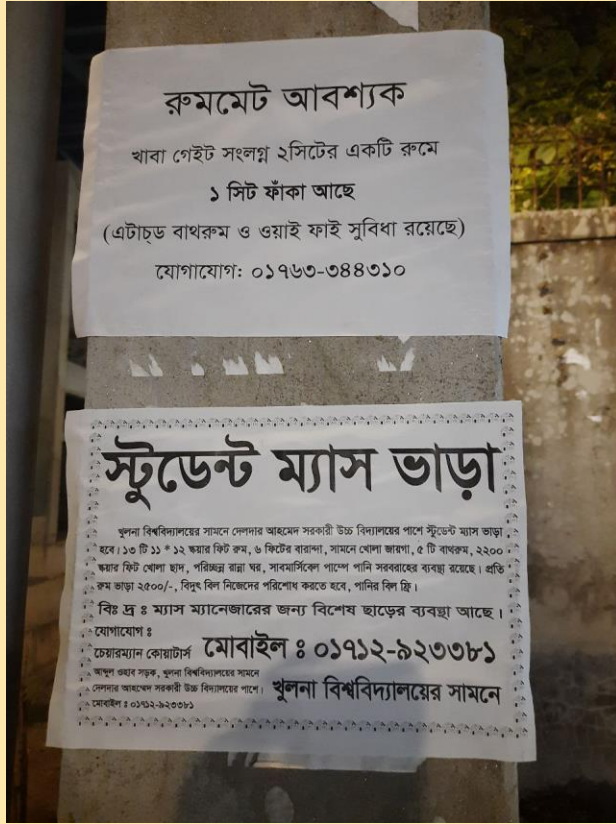 রুমমেট আবশ্যক
খাবা গেইট সংলগ্ন ২সিটের একটি রুমে
১ সিট ফাঁকা আছে
(এটাচ্‌ড বাথরুম ও ওয়াই ফাই সুবিধা রয়েছে)
যোগাযোগ: ০১৭৬৩-৩৪৪৩১০
স্টুডেন্ট ম্যাস ভাড়া
খুলনা বিশ্ববিদ্যালয়ের সামনে দেলদার আহমেদ সরকারী উচ্চ বিদ্যালয়ের পাশে স্টুডেন্ট ম্যাস ভাড়া
হবে। ১৩ টি ১১ * ১২ স্কয়ার ফিট রুম, ৬ ফিটের বারান্দা, সামনে খোলা জায়গা, ৫ টি বাথরুম, ২২০০
স্কয়ার ফিট খোলা ছাদ, পরিচ্ছন্ন রান্না ঘর, সাবমার্সিবেল পাম্পে পানি সরবরাহের ব্যবস্থা রয়েছে। প্রতি
রুম ভাড়া ২৫০০/-, বিদুৎ বিল নিজেদের পরিশোধ করতে হবে, পানির বিল ফ্রি।
বিঃ দ্র ঃ ম্যাস ম্যানেজারের জন্য বিশেষ ছাড়ের ব্যবস্থা আছে।
যোগাযোগ ঃ
চেয়ারম্যান কোয়াটার্স
মোবাইল ঃ ০১৭১২-৯২৩৩৮১
আব্দুল ওহাব সড়ক, খুলনা বিশ্ববিদ্যালয়ের সামনে
দেলদার আহমেদ সরকারী উচ্চ বিদ্যালয়ের পাশে।
খুলনা বিশ্ববিদ্যালয়ের সামনে
মোবাইল ঃ ০১৭১২-৯২৩৩৮১